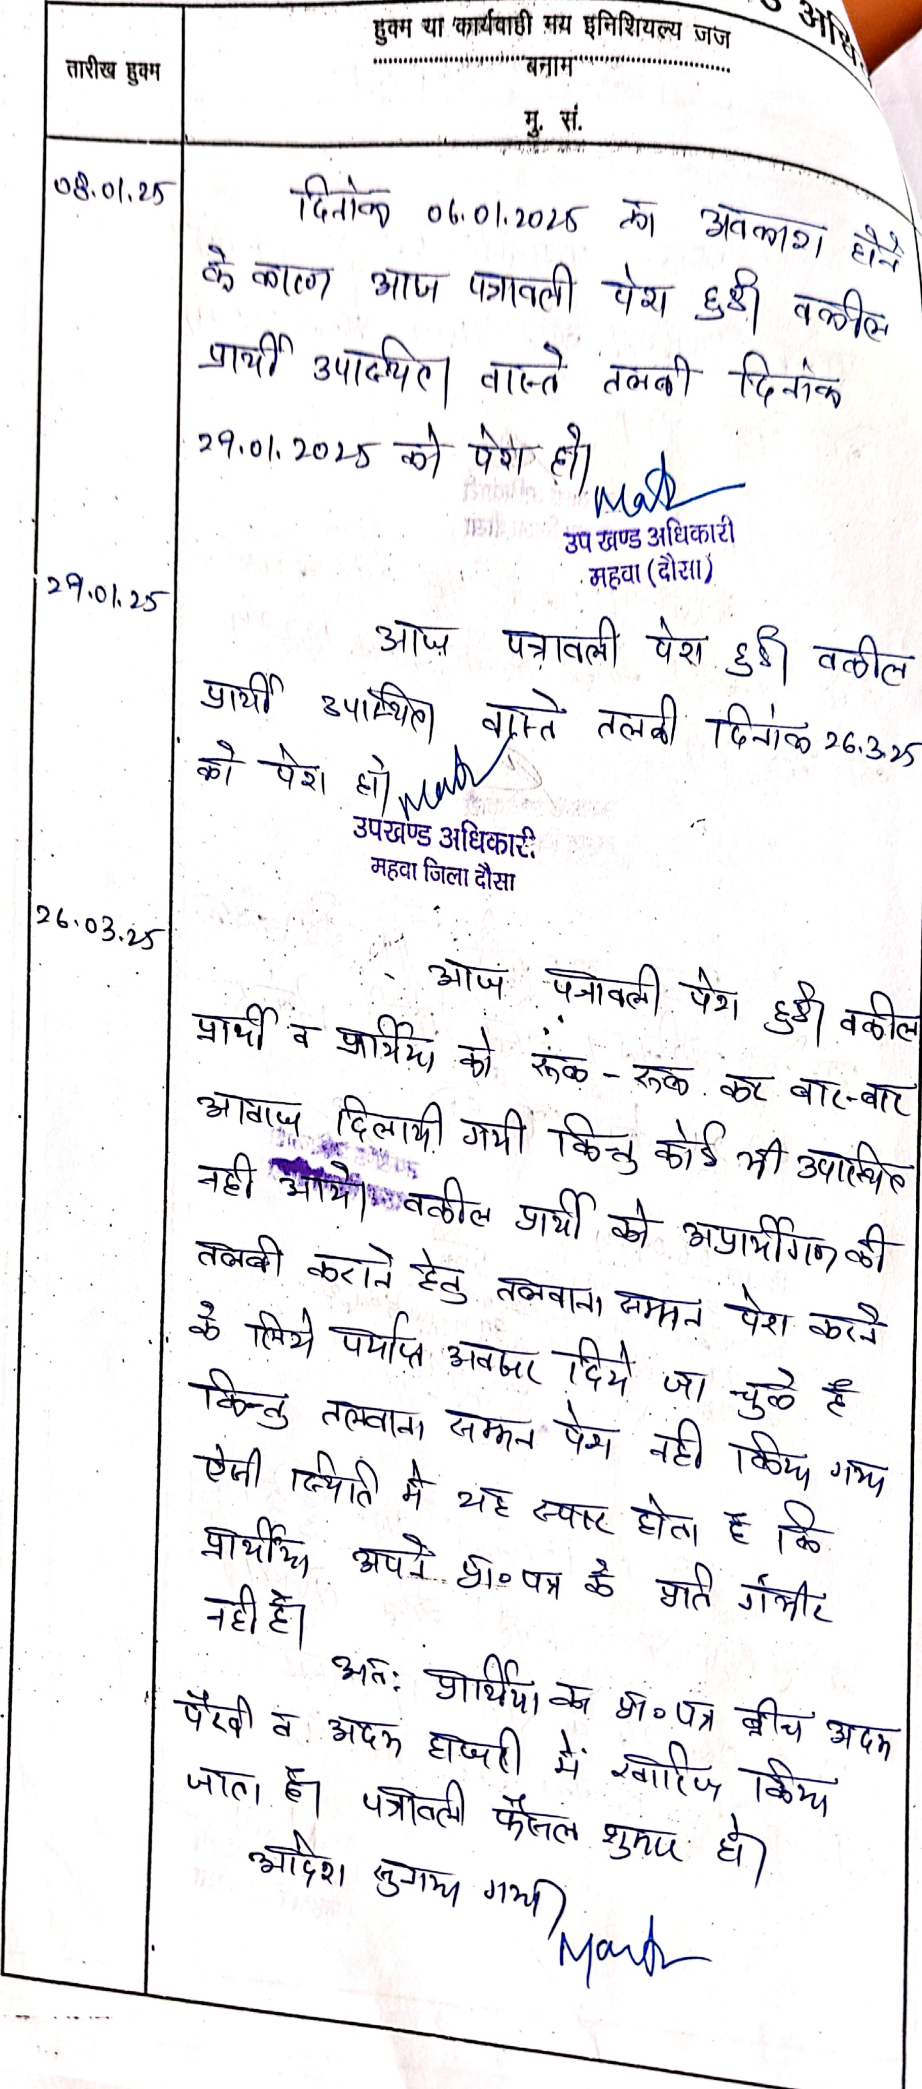 हुक्म या कार्यवाही मय इनिशियल्य जज
तारीख हुक्म
बनाम
मु. सं.
08.01.25
दिनांक 06.01.2025 का अवकाश होने
के कारण आज पत्रावली पेश हुई। वकील
प्रार्थी उपस्थित। वास्ते तलबी दिनांक
29.01.2025 को पेश हो।
उप खण्ड अधिकारी
महवा (दौसा)
29.01.25
आज पत्रावली पेश हुई। वकील
प्रार्थी उपस्थित। वास्ते तलबी दिनांक 26.3.25
को पेश हो।
उपखण्ड अधिकारी
महवा जिला दौसा
26.03.25
आज पत्रावली पेश हुई। वकील
प्रार्थी व प्रार्थीया को रूक - रूक कर बार-बार
आवाज दिलायी गयी किन्तु कोई भी उपस्थित
नही आये। वकील प्रार्थी को अप्रार्थीगण की
तलबी कराने हेतु तलवाना सम्मन पेश करने
के लिये पर्याप्त अवसर दिये जा चुके है
किन्तु तलवाना सम्मन पेश नही किया गया
ऐसी स्थिति मे यह स्पष्ट होता है कि
प्रार्थीया अपने प्रा० पत्र के प्रति गंभीर
नही है।
अतः प्रार्थिया का प्रा० पत्र बीच अदम
पैरवी व अदम हाजरी में खारिज किया
जाता है। पत्रावली फैसल शुमार हो।
आदेश सुनाया गया।